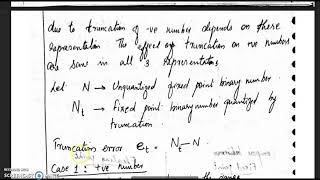 due to truncation of -ve number depends on these
representation The effect of truncation on +ve numbers
are same in all 3 representations
Let N → Unquantized fixed point binary number.
Nt → Fixed point binary number quantized by
truncation.
Truncation error et = Nt - N
Case 1: +ve number